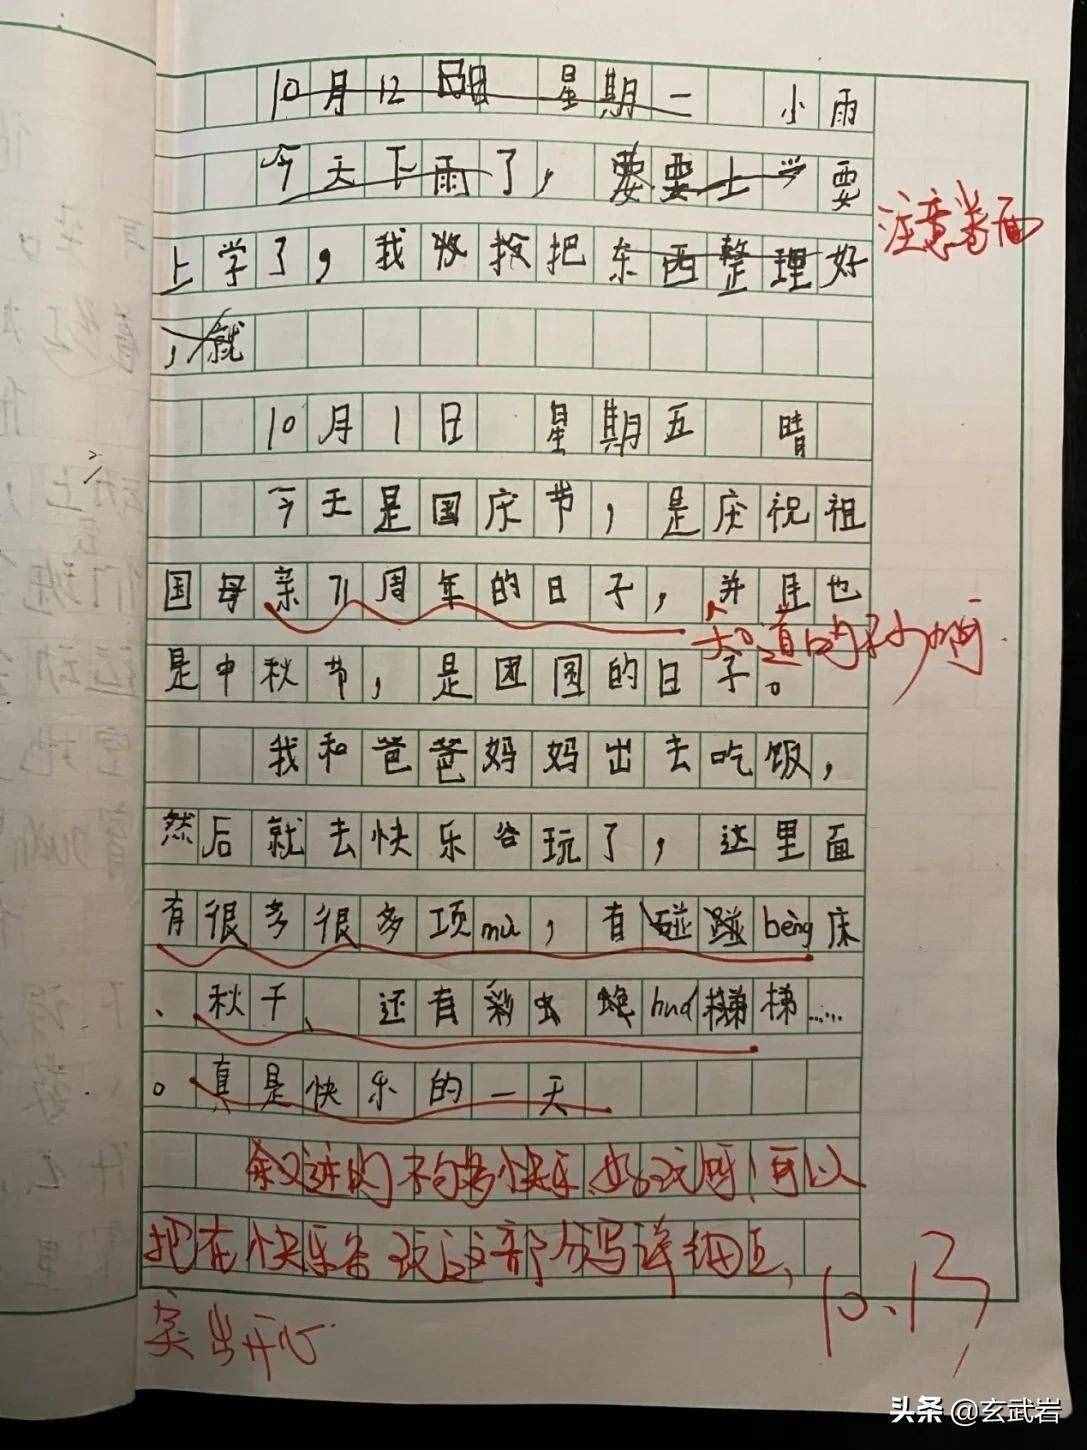 10月12日 星期一 小雨
今天下雨了，要要上学要
注意卷面
上学了，我收拾把东西整理好
，就
10月1日 星期五 晴
今天是国庆节，是庆祝祖
国母亲71周年的日子，并且也
知道的不少啊
是中秋节，是团圆的日子。
我和爸爸妈妈出去吃饭，
然后就去快乐谷玩了，这里面
有很多很多项mù，有碰蹦bèng床
、秋千、还有彩虫 huá梯梯……
。真是快乐的一天
叙述的不够多快乐、好玩呀！可以
把在快乐谷玩这部分写详细点、
突出开心
10.13
头条 @玄武岩